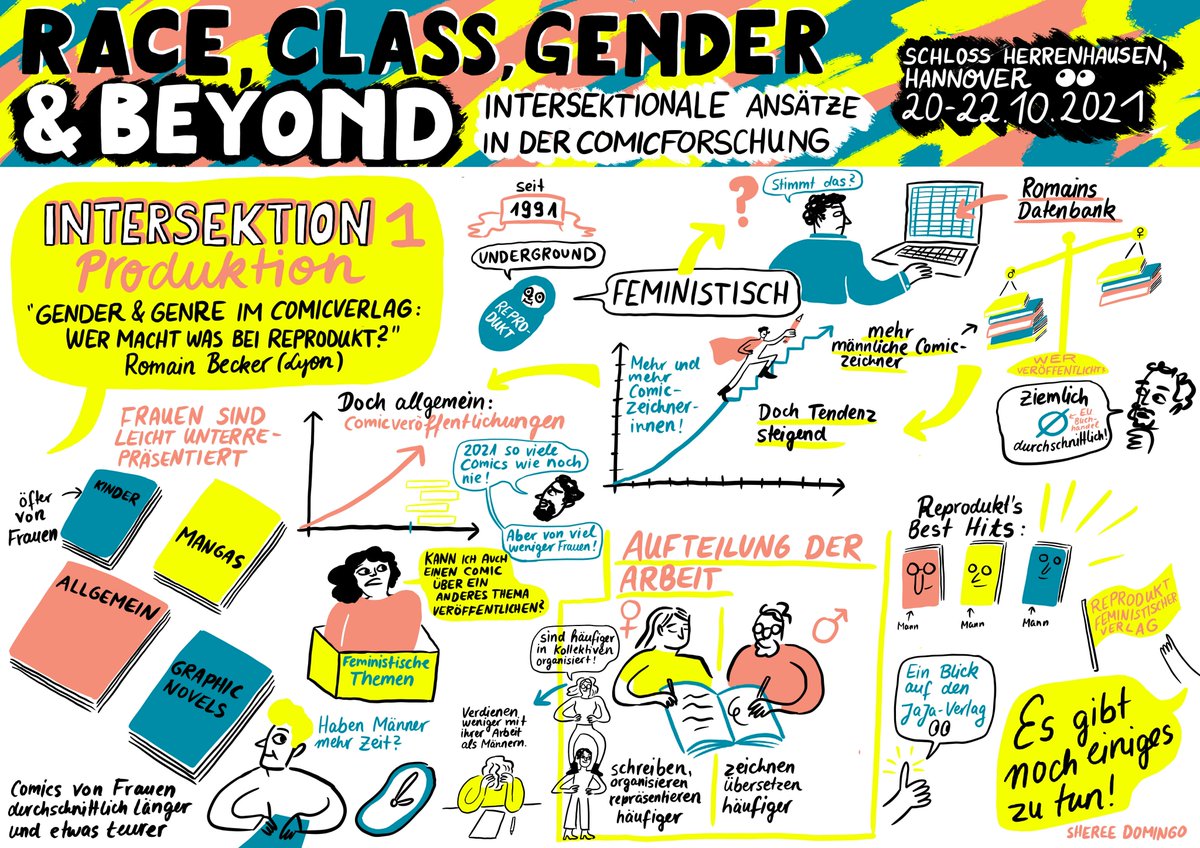 RACE, CLASS, GENDER
& BEYOND
INTERSEKTIONALE ANSÄTZE
IN DER COMICFORSCHUNG
SCHLOSS HERRENHAUSEN,
HANNOVER
20-22.10.2021
INTERSEKTION 1
Produktion
"GENDER & GENRE IM COMICVERLAG:
WER MACHT WAS BEI REPRODUKT?"
Romain Becker (Lyon)
seit
1991
UNDERGROUND
REPRO-
DUKT
FEMINISTISCH
?
Stimmt das?
Romains
Datenbank
♂
♀
WER
VERÖFFENTLICHT?
ZIEMLICH
EU
Buch-
handel
durchschnittlich!
Mehr und
mehr
Comic-
Zeichner-
innen!
mehr
männliche Comic-
zeichner
Doch Tendenz
steigend
Doch allgemein:
Comicveröffentlichungen
2021 so viele
Comics wie noch
nie!
Aber von viel
weniger Frauen!
FRAUEN SIND
LEICHT UNTERRE-
PRÄSENTIERT
öfter
von
Frauen
KINDER
MANGAS
ALLGEMEIN
GRAPHIC
NOVELS
Comics von Frauen
durchschnittlich länger
und etwas teurer
KANN ICH AUCH
EINEN COMIC
ÜBER EIN
ANDERES THEMA
VERÖFFENTLICHEN?
Feministische
Themen
Haben Männer
mehr Zeit?
Verdienen
weniger mit
ihrer Arbeit
als Männern.
AUFTEILUNG DER
ARBEIT
♀
♂
sind häufiger
in Kollektiven
organisiert!
schreiben,
organisieren
repräsentieren
häufiger
zeichnen
übersetzen
häufiger
Reprodukt's
Best Hits:
Mann
Mann
Mann
REPRODUKT
FEMINISTISCHER
VERLAG
Ein Blick
auf den
JaJa-Verlag
Es gibt
noch einiges
zu tun!
SHEREE DOMINGO